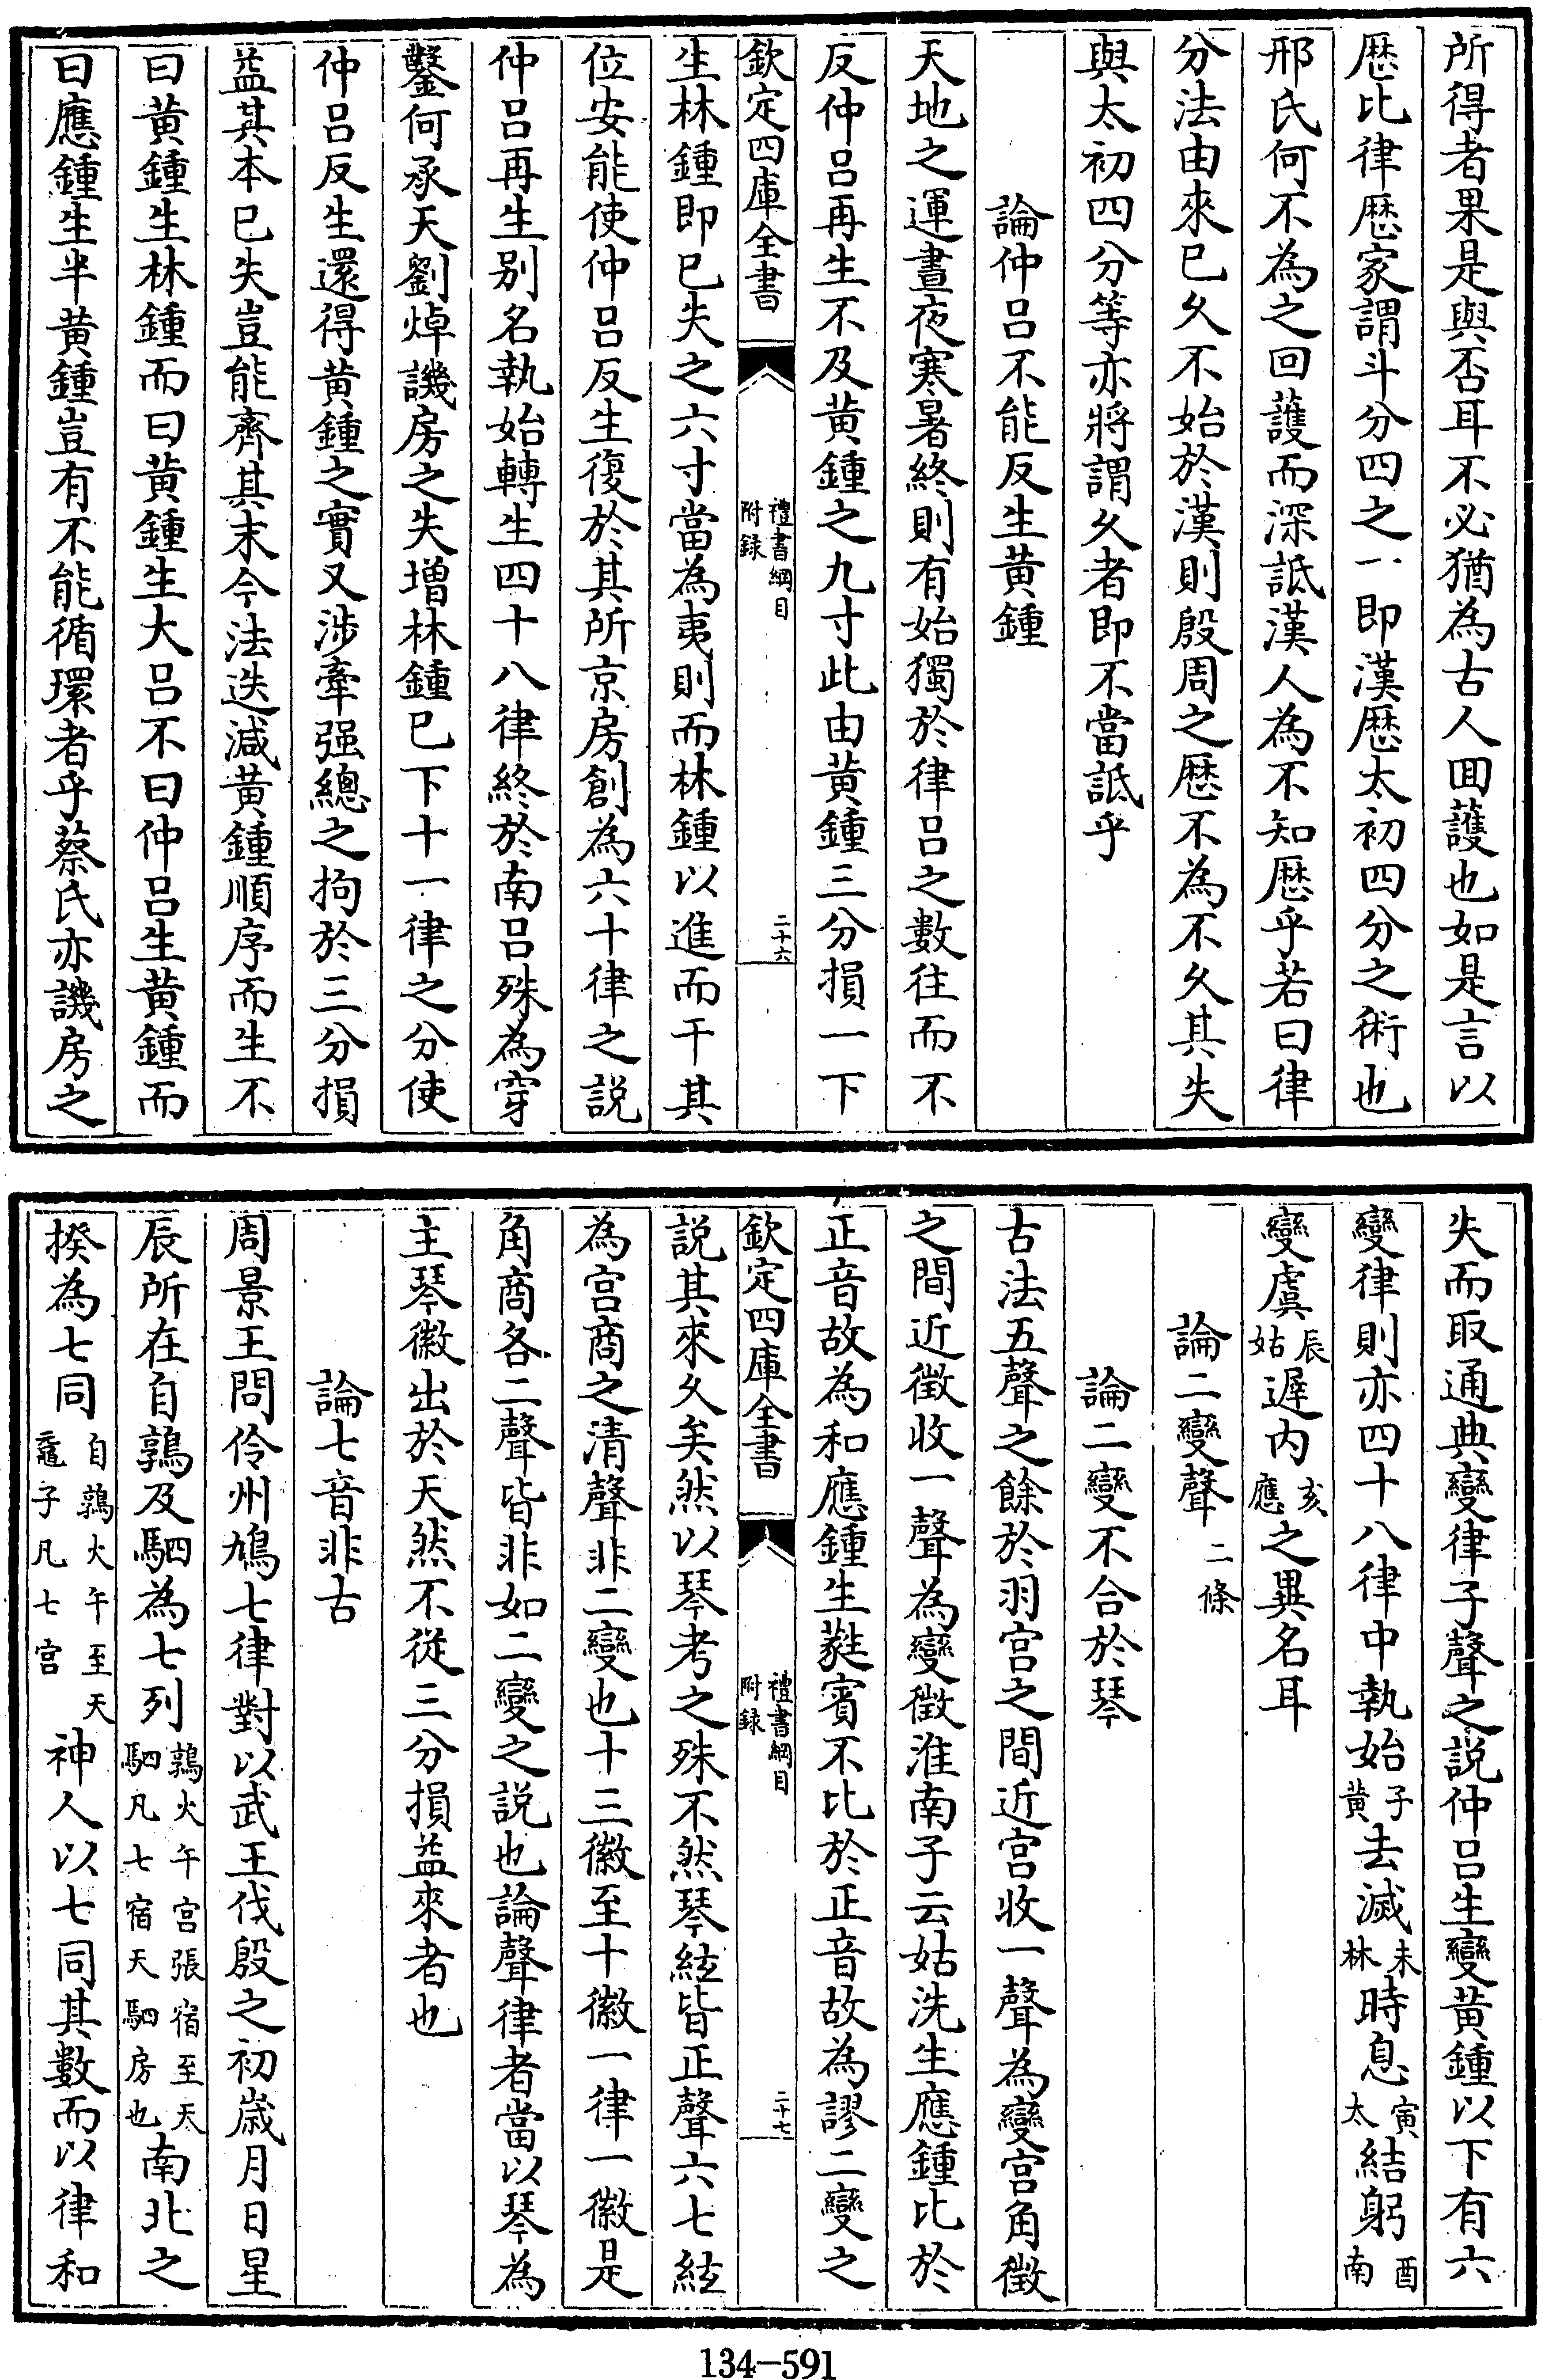 所得者果是與否耳不必猶為古人囬護也如是言以
厯比律厯家謂斗分四之一即漢厯太初四分之術也
邢氏何不為之回護而深詆漢人為不知厯乎若曰律
分法由來已久不始於漢則殷周之厯不為不久其失
與太初四分等亦將謂久者即不當詆乎
論仲呂不能反生黄鍾
天地之運晝夜寒暑終則有始獨於律呂之數往而不
反仲呂再生不及黄鍾之九寸此由黄鍾三分損一下
欽定四庫全書
禮書綱目
附録
二十六
生林鍾即已失之六寸當為夷則而林鍾以進而干其
位安能使仲呂反生復於其所京房創為六十律之説
仲呂再生别名執始轉生四十八律終於南呂殊為穿
鑿何承天劉焯譏房之失增林鍾已下十一律之分使
仲呂反生還得黄鍾之實又涉牽强總之拘於三分損
益其本已失豈能齊其末今法迭減黄鍾順序而生不
曰黄鍾生林鍾而曰黄鍾生大呂不曰仲呂生黄鍾而
曰應鍾生半黄鍾豈有不能循環者乎蔡氏亦譏房之
失而取通典變律子聲之説仲呂生變黄鍾以下有六
變律則亦四十八律中執始子黄去滅未林時息寅太結躬酉南
變虞辰姑遲内亥應之異名耳
論二變聲二條
論二變不合於琴
古法五聲之餘於羽宫之間近宫收一聲為變宫角徵
之間近徵收一聲為變徵淮南子云姑洗生應鍾比於
正音故為和應鍾生蕤賓不比於正音故為謬二變之
欽定四庫全書
禮書綱目
附録
二十七
説其來久矣然以琴考之殊不然琴絃皆正聲六七絃
為宫商之清聲非二變也十三徽至十徽一律一徽是
角商各二聲皆非如二變之説也論聲律者當以琴為
主琴徽出於天然不從三分損益來者也
論七音非古
周景王問伶州鳩七律對以武王伐殷之初歳月日星
辰所在自鶉及駟為七列鶉火午宫張宿至天駟凡七宿天駟房也南北之
揆為七同自鶉火午至天黿子凡七宫神人以七同其數而以律和
134-591